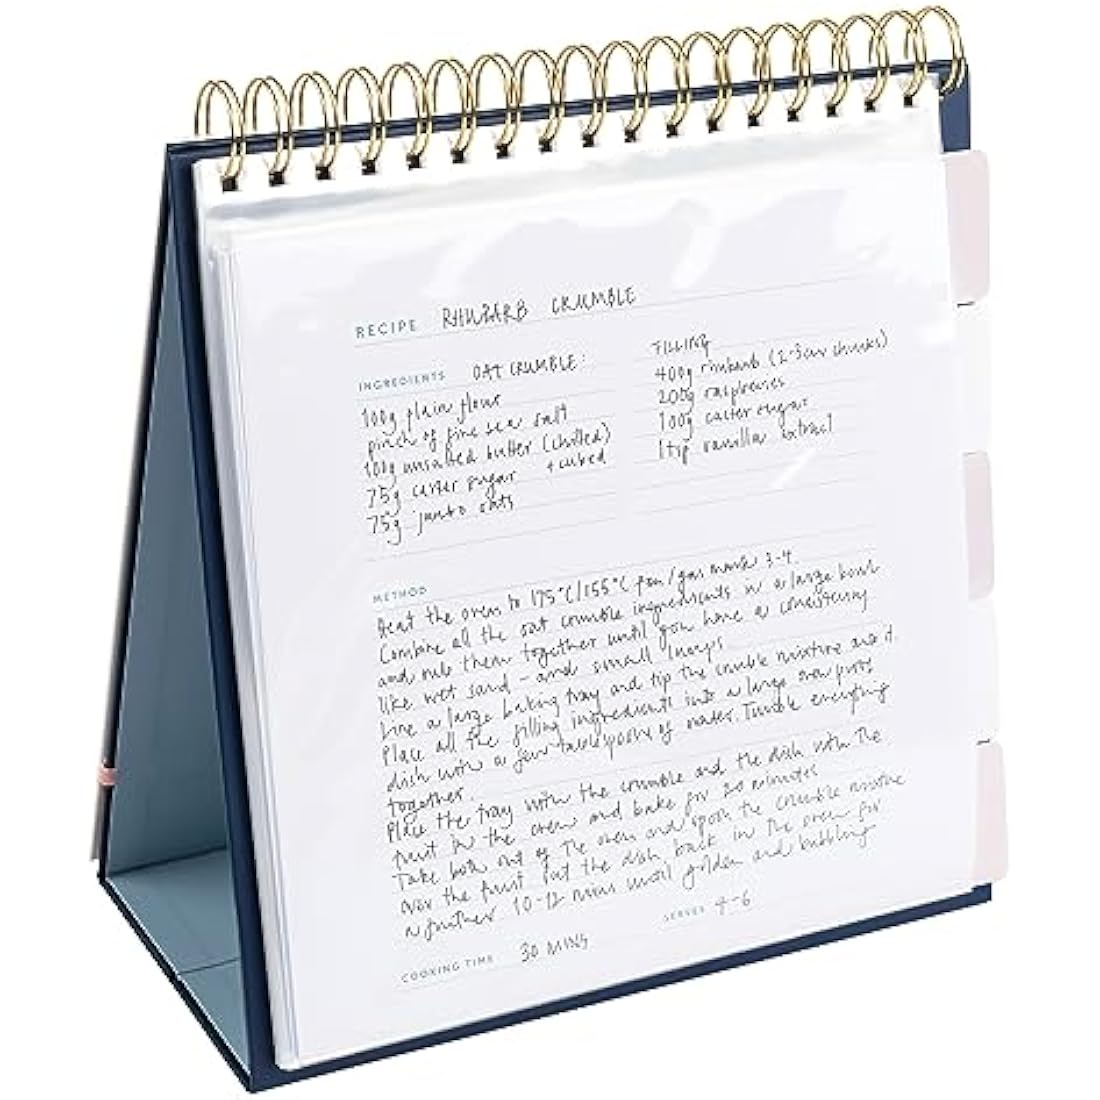 RECIPE RHUBARB CRUMBLE
INGREDIENTS OAT CRUMBLE:
100g plain flour
pinch of fine sea salt
100g unsalted butter (chilled)
+ cubed
75g caster sugar
75g jumbo oats
FILLING
400g rhubarb (2-3cm chunks)
200g raspberries
100g caster sugar
1tsp vanilla extract
METHOD
Heat the oven to 175°C/155°C fan/gas mark 3-4
Combine all the oat crumble ingredients in a large bowl
and rub them together until you have a consistency
like wet sand - and small lumps
Line a large baking tray and tip the crumble mixture onto it.
Place all the filling ingredients into a large oven proof
dish with a few tablespoons of water. Tumble everything
together.
Place the tray with the crumble and the dish with the
fruit in the oven and bake for 20 minutes
Take both out of the oven and spoon the crumble mixture
over the fruit. Put the dish back in the oven for
a further 10-12 mins until golden and bubbling
COOKING TIME 30 MINS SERVES 4-6